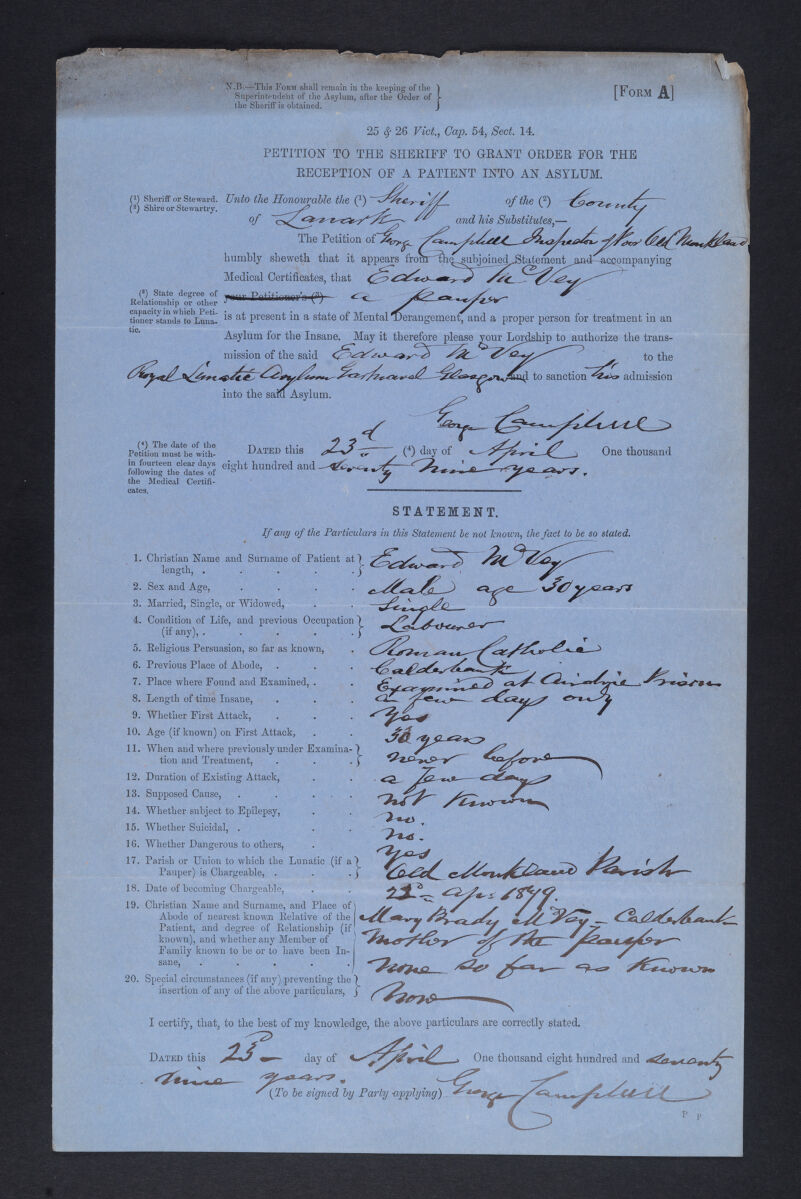 N.B.—This Form shall remain in the keeping of the
Superintendent of the Asylum, after the Order of
the Sheriff is obtained.
[Form A]
25 & 26 Vict., Cap. 54, Sect. 14.
PETITION TO THE SHERIFF TO GRANT ORDER FOR THE
RECEPTION OF A PATIENT INTO AN ASYLUM.
(1) Sheriff or Steward.
(2) Shire or Stewartry.
Unto the Honourable the (1) Sheriff of the (2) County
of Lanark and his Substitutes,—
The Petition of George Campbell Inspector of Poor Old Monkland
humbly sheweth that it appears from the subjoined Statement and accompanying
Medical Certificates, that Edward McVey
(3) State degree of
Relationship or other
capacity in which Peti-
tioner stands to Luna-
tic.
your Petitioner's (3) a pauper
is at present in a state of Mental Derangement, and a proper person for treatment in an
Asylum for the Insane. May it therefore please your Lordship to authorize the trans-
mission of the said Edward McVey to the
Royal Lunatic Asylum Gartnavel Glasgow and to sanction his admission
into the said Asylum.
George Campbell
(4) The date of the
Petition must be with-
in fourteen clear days
following the dates of
the Medical Certifi-
cates.
Dated this 23d (4) day of April One thousand
eight hundred and seventy nine years.
STATEMENT.
If any of the Particulars in this Statement be not known, the fact to be so stated.
1. Christian Name and Surname of Patient at
length, . Edward McVey
2. Sex and Age, Male age 30 years
3. Married, Single, or Widowed, Single
4. Condition of Life, and previous Occupation
(if any), . Labourer
5. Religious Persuasion, so far as known, Roman Catholic
6. Previous Place of Abode, Calderbank
7. Place where Found and Examined, . Examined at Airdrie Prison
8. Length of time Insane, a few days only
9. Whether First Attack, Yes
10. Age (if known) on First Attack, 30 years
11. When and where previously under Examina-
tion and Treatment, never before
12. Duration of Existing Attack, a few days
13. Supposed Cause, not known
14. Whether subject to Epilepsy, no.
15. Whether Suicidal, . no.
16. Whether Dangerous to others, yes
17. Parish or Union to which the Lunatic (if a
Pauper) is Chargeable, . Old Monkland Parish
18. Date of becoming Chargeable, 22d Apr 1879.
19. Christian Name and Surname, and Place of
Abode of nearest known Relative of the
Patient, and degree of Relationship (if
known), and whether any Member of
Family known to be or to have been In-
sane,
Mary Brady McVey – Calderbank
Mother of the pauper
None so far as known
20. Special circumstances (if any) preventing the
insertion of any of the above particulars, None
I certify, that, to the best of my knowledge, the above particulars are correctly stated.
Dated this 23d day of April One thousand eight hundred and seventy
nine years.
(To be signed by Party applying) George Campbell
P P